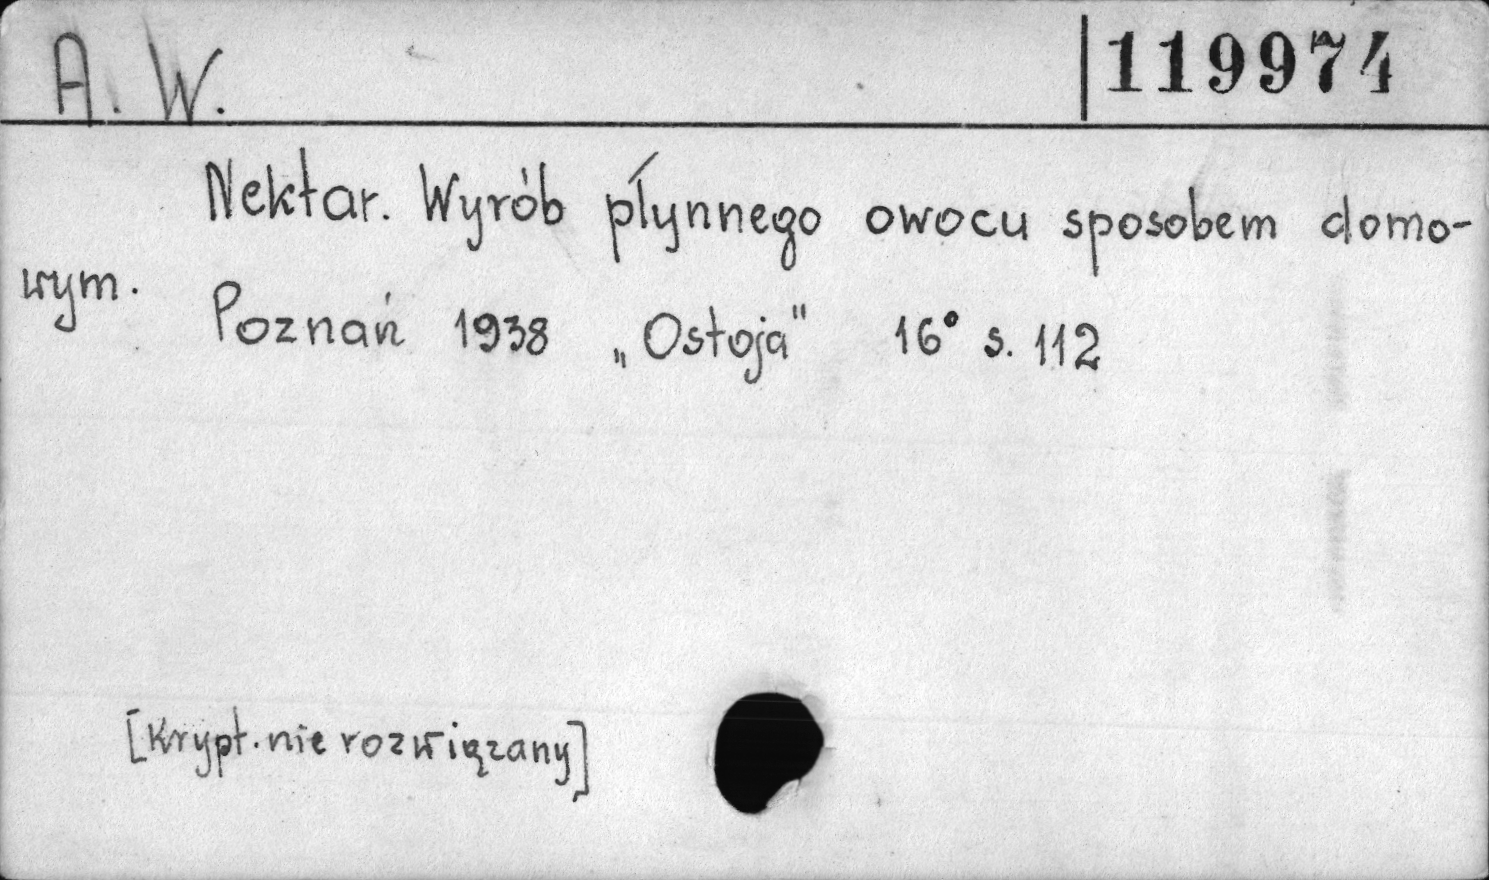 A. W.
119974
Nektar. Wyrób płynnego owocu sposobem domo-
wym.
Poznań 1938 „Ostoja" 16° s. 112
[Krypt. nie rozwiązany]